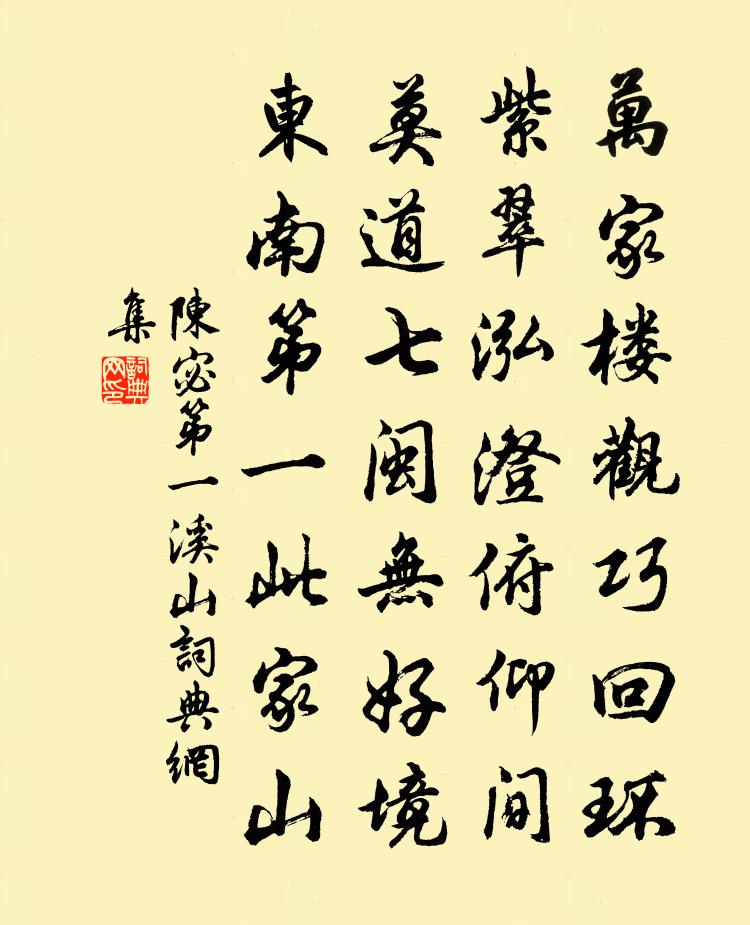 萬家楼觀巧回环
紫翠泓澄俯仰间
莫道七闽無好境
東南第一此家山
陳宓第一溪山詞典網
集
詞典
网印